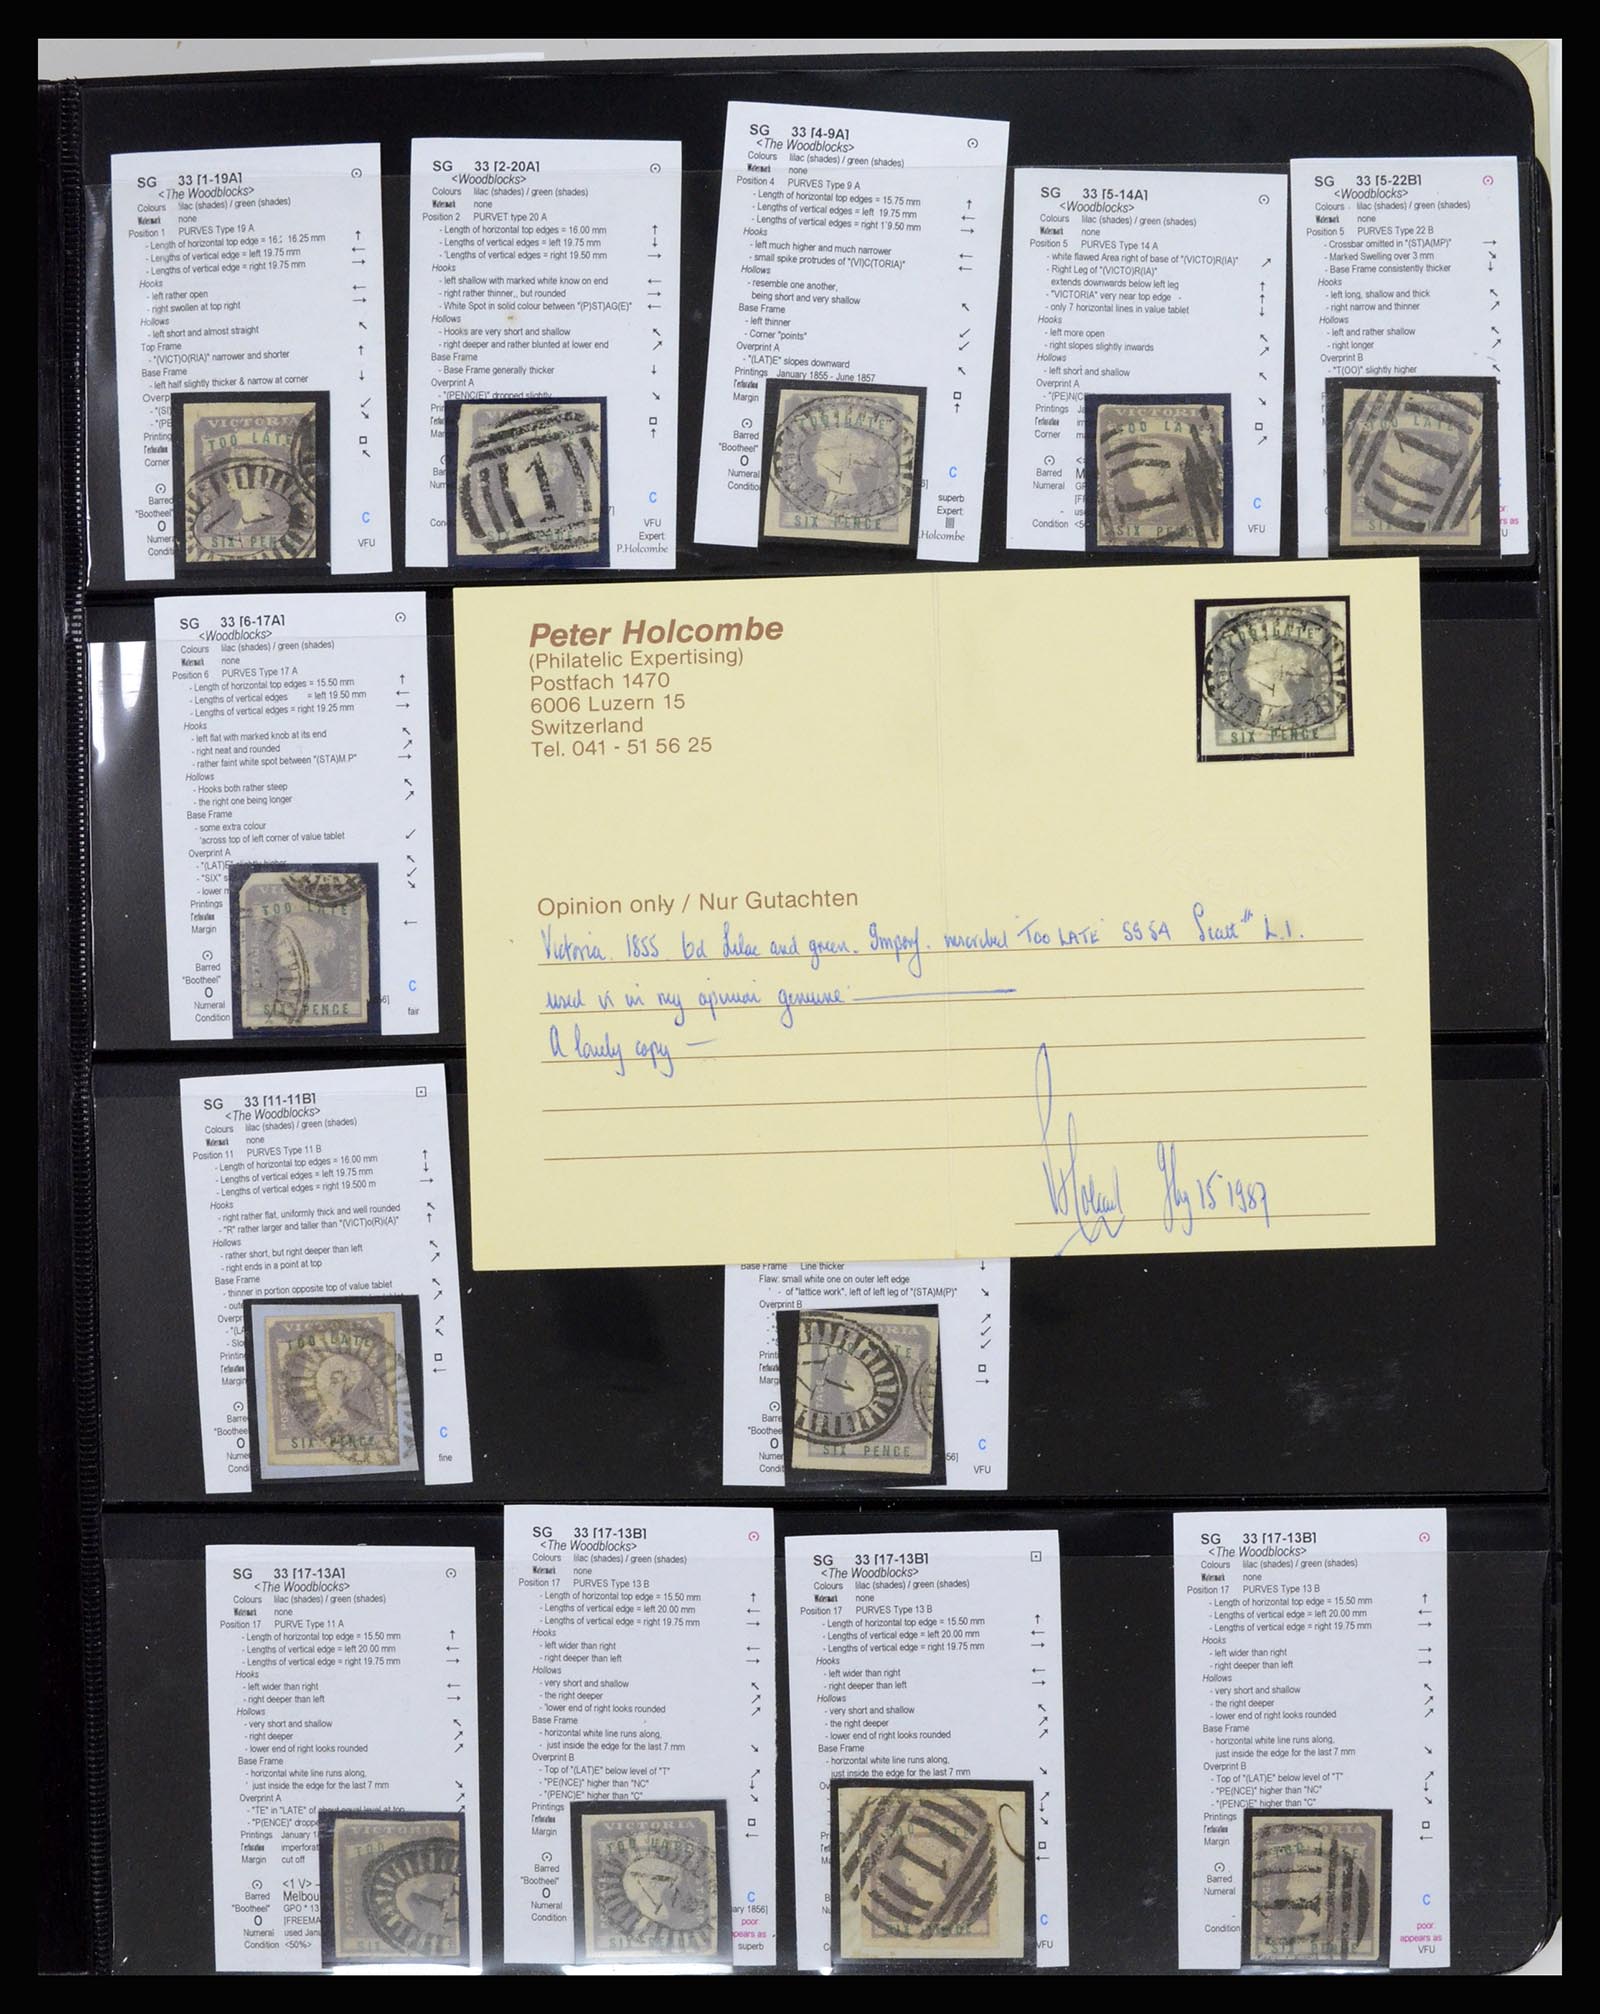 SG 33 [1-19A]
<The Woodblocks>
Colours lilac (shades) / green (shades)
Watermark none
Position 1 PURVES Type 19 A
- Lengths of vertical edge = left 19.75 mm
- Lengths of vertical edge = right 19.75 mm
Hooks
- left rather open
- right swollen at top right
Hollows
- left short and almost straight
Top Frame
- "(VICT)O(RIA)" narrower and shorter
Base Frame
- left half slightly thicker & narrow at corner
Corner
Barred
"Bootheel"
C
VFU
SG 33 [2-20A]
<Woodblocks>
Colours lilac (shades) / green (shades)
Watermark none
Position 2 PURVET type 20 A
- Length of horizontal top edges = 16.00 mm
- Lengths of vertical edges = left 19.75 mm
- 'Lengths of vertical edges = right 19.50 mm
Hooks
- left shallow with marked white know on end
- right rather thinner,, but rounded
- White Spot in solid colour between "(P)ST)AG(E)"
Hollows
- Hooks are very short and shallow
- right deeper and rather blunted at lower end
Base Frame
- Base Frame generally thicker
Overprint A
- "(PEN)C(E)" dropped slightly
C
VFU
Expert
P.Holcombe
SG 33 [4-9A]
<The Woodblocks>
Colours lilac (shades) / green (shades)
Watermark none
Position 4 PURVES Type 9 A
- Length of horizontal top edges = 15.75 mm
- Lengths of vertical edges = left 19.75 mm
- Lengths of vertical edges = right 1'9.50 mm
Hooks
- left much higher and much narrower
- small spike protrudes of "(VI)C(TORIA)"
Hollows
- resemble one another,
being short and very shallow
Base Frame
- left thinner
- Corner "points"
Overprint A
- "(LAT)E" slopes downward
Printings January 1855 - June 1857
Perforation
Margin
Barred
"Bootheel"
Numeral
Conditio
C
superb
Expert
Holcombe
SG 33 [5-14A]
<Woodblocks>
Colours lilac (shades) / green (shades)
Watermark none
Position 5 PURVES Type 14 A
- white flawed Area right of base of "(VICTO)R(IA)"
- Right Leg of "(VICTO)R(IA)"
extends downwards below left leg
- "VICTORIA" very near top edge -
- only 7 horizontal lines in value tablet
Hooks
- left more open
- right slopes slightly inwards
Hollows
- left short and shallow
Overprint A
- "(PE)N(C
Printings
Corner
Barred
Numeral
Condition
C
VFU
SG 33 [5-22B]
<Woodblocks>
Colours lilac (shades) / green (shades)
Watermark none
Position 5 PURVES Type 22 B
- Crossbar omitted in "(ST)A(MP)"
- Marked Swelling over 3 mm
- Base Frame consistently thicker
Hooks
- left long, shallow and thick
- right narrow and thinner
Hollows
- left and rather shallow
- right longer
Overprint B
- "T(OO)" slightly higher
SG 33 [6-17A]
<Woodblocks>
Colours lilac (shades) / green (shades)
Watermark none
Position 6 PURVES Type 17 A
- Length of horizontal top edges = 15.50 mm
- Lengths of vertical edges = left 19.50 mm
- Lengths of vertical edges = right 19.25 mm
Hooks
- left flat with marked knob at its end
- right neat and rounded
- rather faint white spot between "(STA)M.P"
Hollows
- Hooks both rather steep
- the right one being longer
Base Frame
- some extra colour
'across top of left corner of value tablet
Overprint A
- "SIX" s
- lower
Printings
Perforation
Margin
Barred
"Bootheel"
Numeral
Condition
C
fair
Peter Holcombe
(Philatelic Expertising)
Postfach 1470
6006 Luzern 15
Switzerland
Tel. 041 - 51 56 25
Opinion only / Nur Gutachten
Victoria. 1855. 6d Lilac and green. Imperf. inscribed "TOO LATE" SG 54 Scott L.1.
used is in my opinion genuine
A lovely copy —
July 15 1987
SG 33 [11-11B]
<The Woodblocks>
Colours lilac (shades) / green (shades)
Watermark none
Position 11 PURVES Type 11 B
- Length of horizontal top edges = 16.00 mm
- Lengths of vertical edges = left 19.75 mm
- Lengths of vertical edges = right 19.500 m
Hooks
- right rather flat, uniformly thick and well rounded
- "R" rather larger and taller than "(VICT)o(R)I(A)"
Hollows
- rather short, but right deeper than left
- right ends in a point at top
Base Frame
- thinner in portion opposite top of value tablet
C
fine
Base Frame Line thicker
Flaw: small white one on outer left edge
- of "lattice work", left of left leg of "(STA)M(P)"
Overprint B
C
VFU
SG 33 [17-13A]
<The Woodblocks>
Colours lilac (shades) / green (shades)
Watermark none
Position 17 PURVE Type 11 A
- Length of horizontal top edge = 15.50 mm
- Lengths of vertical edge = left 20.00 mm
- Lengths of vertical edge = right 19.75 mm
Hooks
- left wider than right
- right deeper than left
Hollows
- very short and shallow
- right deeper
- lower end of right looks rounded
Base Frame
- horizontal white line runs along,
' just inside the edge for the last 7 mm
Overprint A
- "TE" in "LATE" of about equal level at top
- "P(ENCE)" droppe
Printings January 1
Perforation imperforat
Margin cut off
<1 V> -
Barred Melbou
"Bootheel" GPO * 13
O [FREEMA
Numeral used Janu
Condition <50%>
SG 33 [17-13B]
<The Woodblocks>
Colours lilac (shades) / green (shades)
Watermark none
Position 17 PURVES Type 13 B
- Length of horizontal top edge = 15.50 mm
- Lengths of vertical edge = left 20.00 mm
- Lengths of vertical edge = right 19.75 mm
Hooks
- left wider than right
- right deeper than left
Hollows
- very short and shallow
- the right deeper
- 'lower end of right looks rounded
Base Frame
- horizontal white line runs along,
- just inside the edge for the last 7 mm
Overprint B
- Top of "(LAT)E" below level of "T"
- "PE(NCE)" higher than "NC"
- "(PENC)E" higher than "C"
Printings
Perforation
Margin
Barred
"Bootheel"
O
Numeral
Condition
C
ary 1856]
poor
pears as
superb
SG 33 [17-13B]
<The Woodblocks>
Colours lilac (shades) / green (shades)
Watermark none
Position 17 PURVES Type 13 B
- Length of horizontal top edge = 15.50 mm
- Lengths of vertical edge = left 20.00 mm
- Lengths of vertical edge = right 19.75 mm
Hooks
- left wider than right
- right deeper than left
Hollows
- very short and shallow
- the right deeper
- lower end of right looks rounded
Base Frame
- horizontal white line runs along,
just inside the edge for the last 7 mm
C
VFU
SG 33 [17-13B]
<The Woodblocks>
Colours lilac (shades) / green (shades)
Watermark none
Position 17 PURVES Type 13 B
- Length of horizontal top edge = 15.50 mm
- Lengths of vertical edge = left 20.00 mm
- Lengths of vertical edge = right 19.75 mm
Hooks
- left wider than right
- right deeper than left
Hollows
- very short and shallow
- the right deeper
- lower end of right looks rounded
Base Frame
- horizontal white line runs along,
just inside the edge for the last 7 mm
Overprint B
- Top of "(LAT)E" below level of "T"
- "PE(NCE)" higher than "NC"
- "(PENC)E" higher than "C"
Printings
Perforation
Margin
Barred
Numeral
Condition
C
poor
appears as
VFU